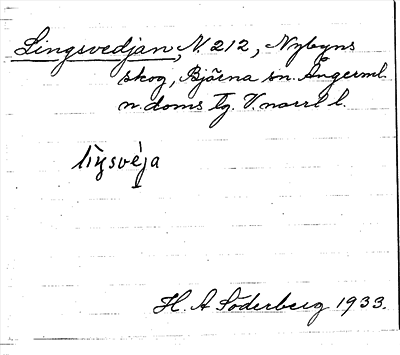 Lingsvedjan, N. 212, Nybyns
skog, Björna sn. Ångerml.
n. doms tg. V. norrl l.
H. A. Söderberg 1933.